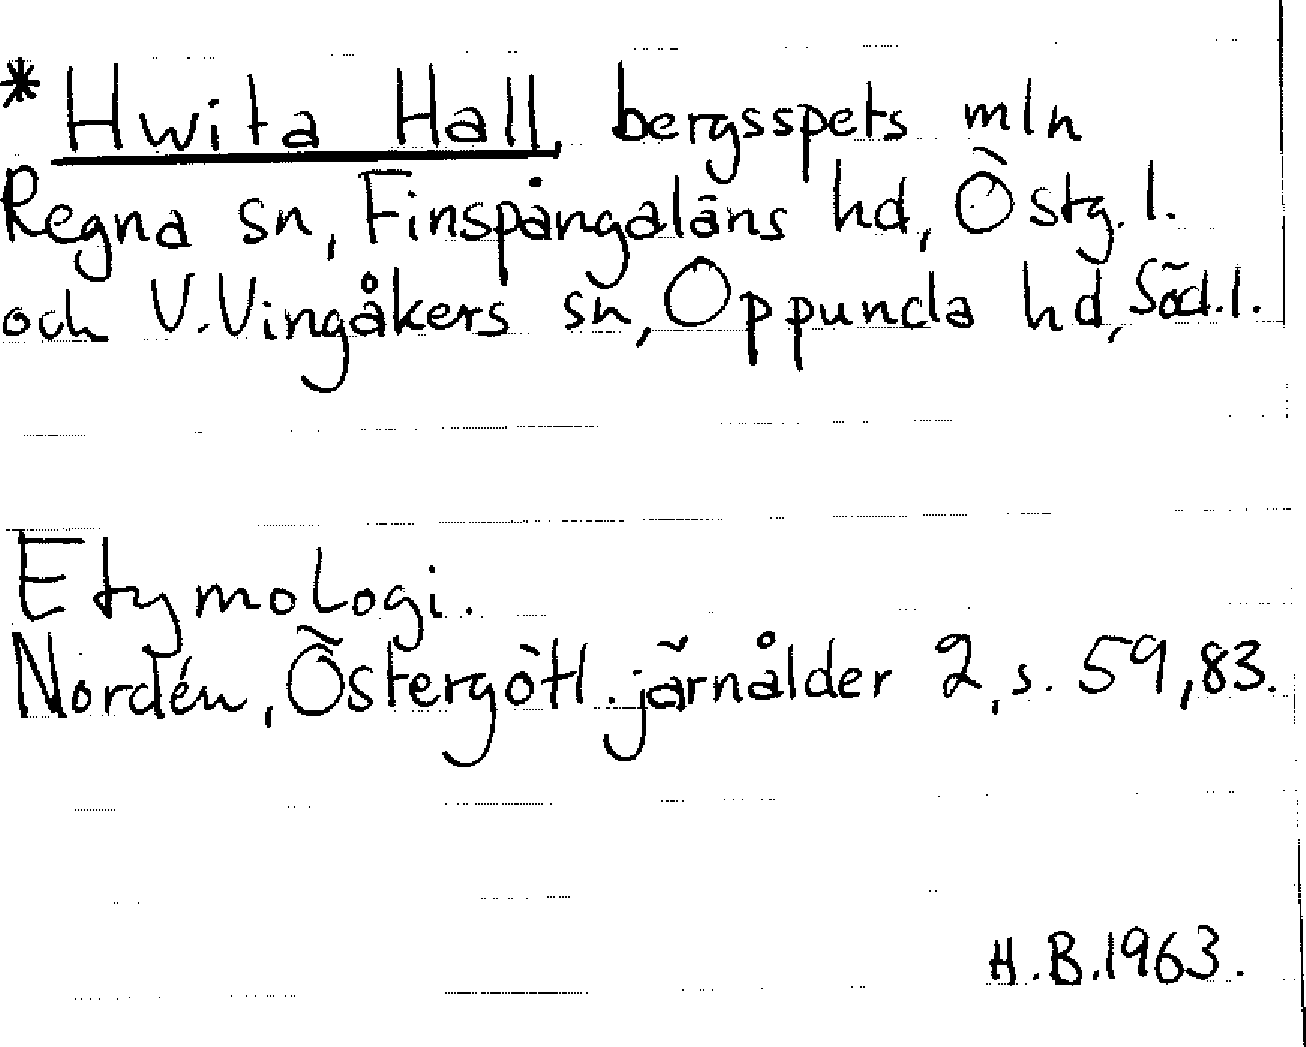 *Hwita Hall, bergsspets mln
Regna sn, Finspångaläns hd, Östg. l.
och V. Vingåkers sn, Oppunda hd, Söd. l.
Etymologi.
Nordén, Östergötl. järnålder 2, s. 59, 83.
H. B. 1963.